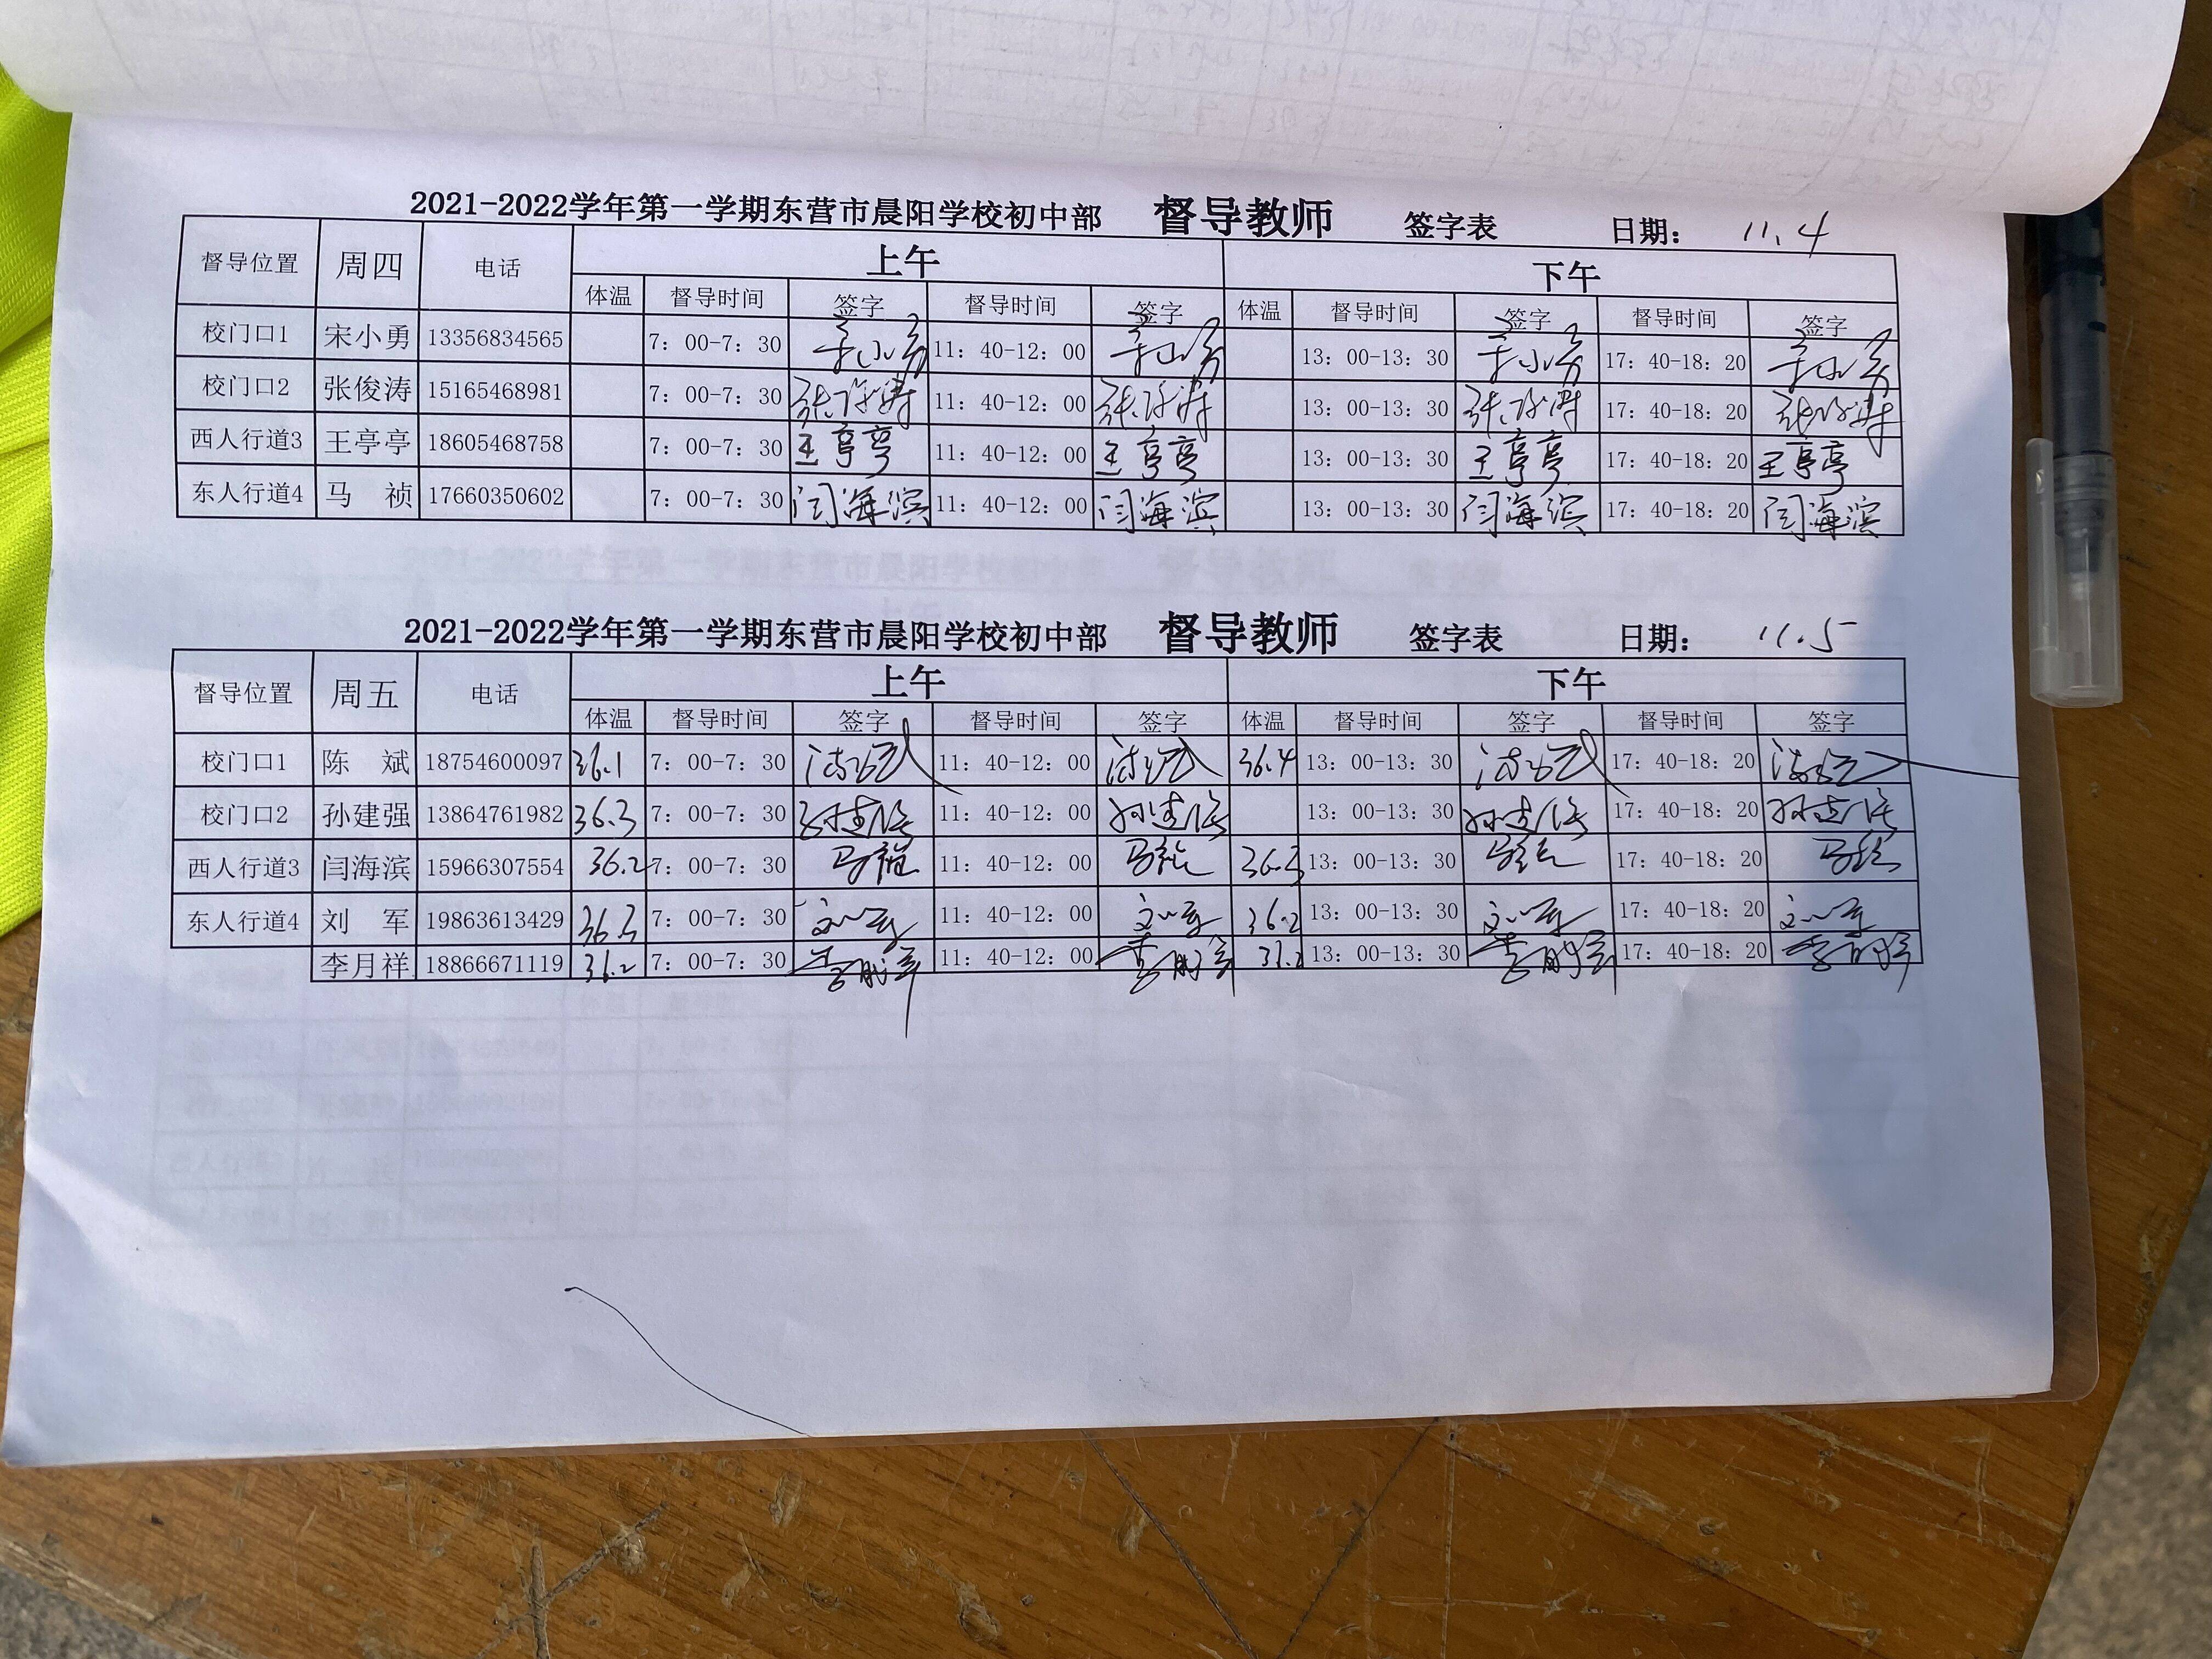 2021-2022学年第一学期东营市晨阳学校初中部 督导教师 签字表 日期: 11.4
督导位置 周四 电话 上午 下午
体温 督导时间 签字 督导时间 签字 体温 督导时间 签字 督导时间 签字
校门口1 宋小勇 13356834565 7：00-7：30 宋小勇 11：40-12：00 宋小勇 13：00-13：30 宋小勇 17：40-18：20 宋小勇
校门口2 张俊涛 15165468981 7：00-7：30 张俊涛 11：40-12：00 张俊涛 13：00-13：30 张俊涛 17：40-18：20 张俊涛
西人行道3 王亭亭 18605468758 7：00-7：30 王亭亭 11：40-12：00 王亭亭 13：00-13：30 王亭亭 17：40-18：20 王亭亭
东人行道4 马 祯 17660350602 7：00-7：30 闫海滨 11：40-12：00 闫海滨 13：00-13：30 闫海滨 17：40-18：20 闫海滨
2021-2022学年第一学期东营市晨阳学校初中部 督导教师 签字表 日期: 11.5
督导位置 周五 电话 上午 下午
体温 督导时间 签字 督导时间 签字 体温 督导时间 签字 督导时间 签字
校门口1 陈 斌 18754600097 36.1 7：00-7：30 11：40-12：00 36.4 13：00-13：30 17：40-18：20
校门口2 孙建强 13864761982 36.3 7：00-7：30 孙建强 11：40-12：00 孙建强 13：00-13：30 孙建强 17：40-18：20 孙建强
西人行道3 闫海滨 15966307554 36.2 7：00-7：30 马祯 11：40-12：00 马祯 36.3 13：00-13：30 马祯 17：40-18：20 马祯
东人行道4 刘 军 19863613429 36.3 7：00-7：30 刘军 11：40-12：00 刘军 36.2 13：00-13：30 刘军 17：40-18：20 刘军
李月祥 18866671119 36.2 7：00-7：30 李月祥 11：40-12：00 李月祥 13：00-13：30 李月祥 17：40-18：20 李月祥